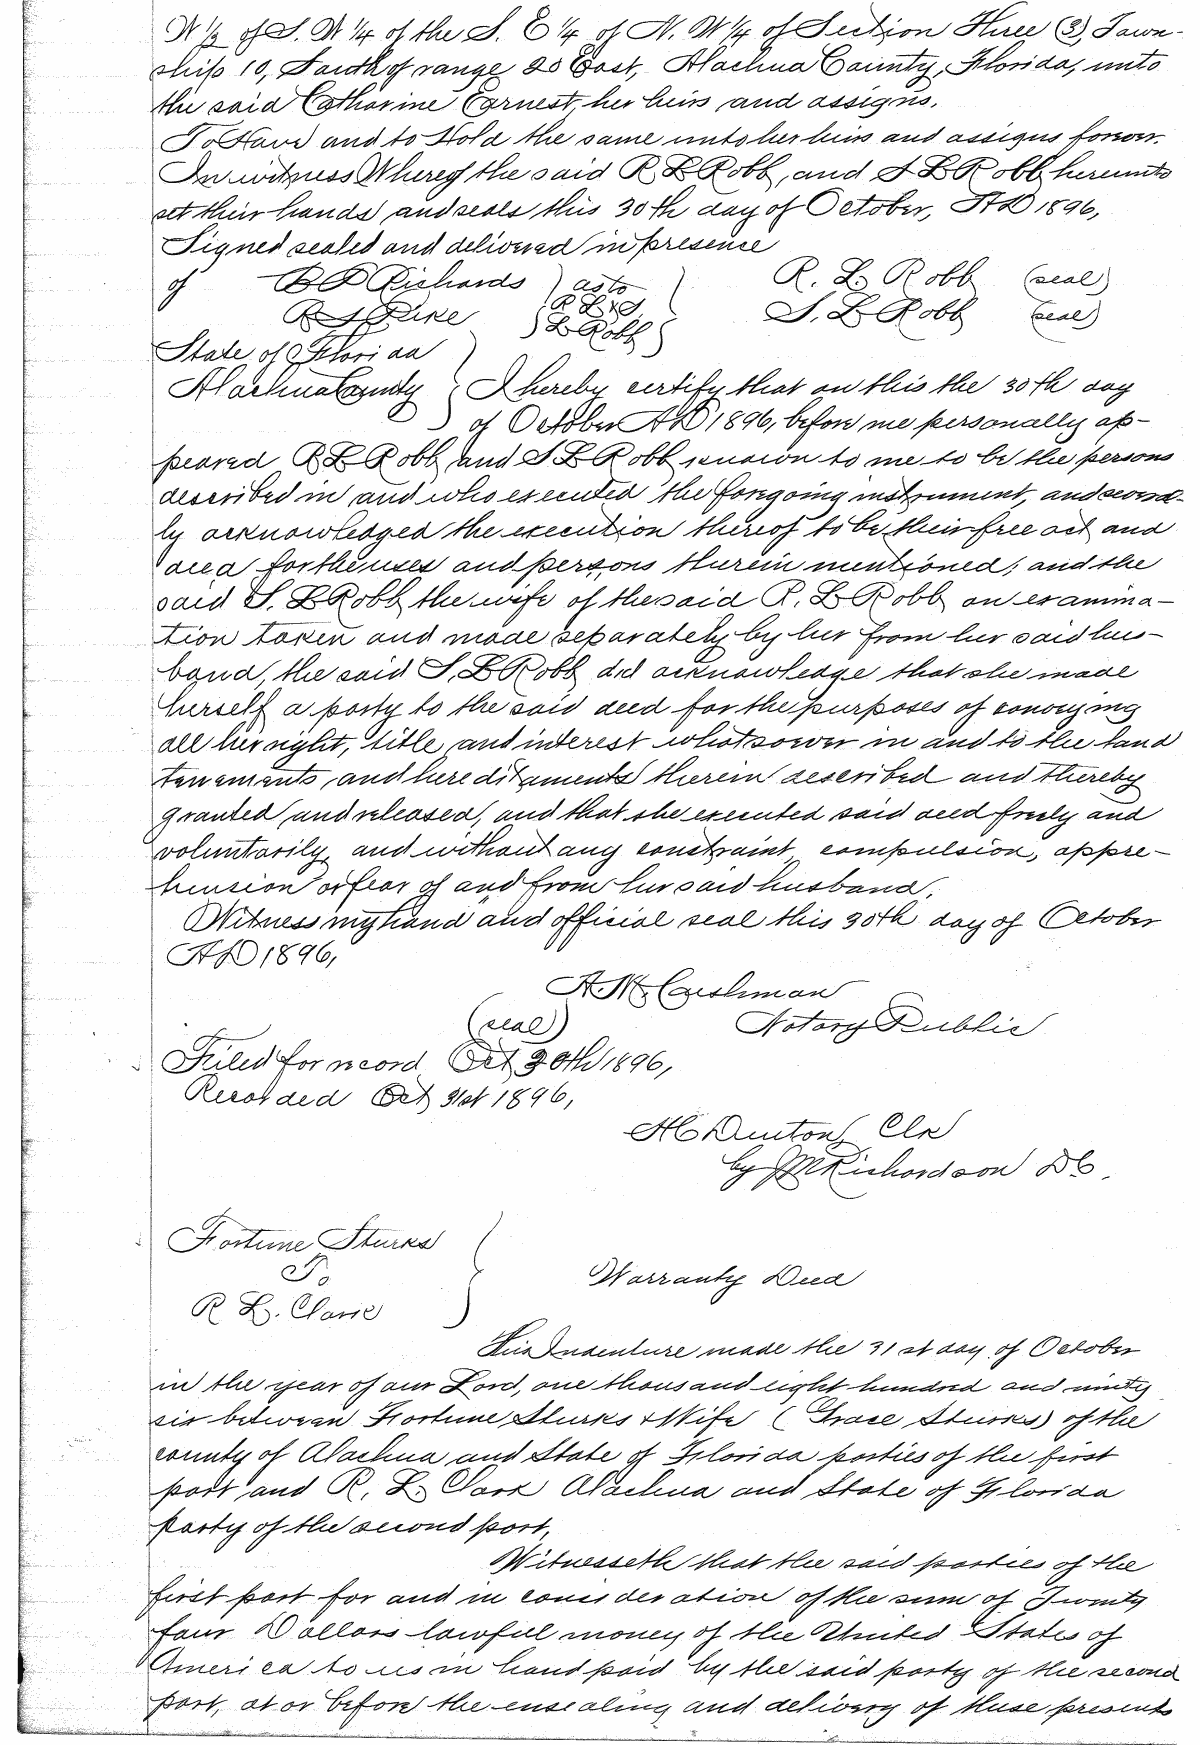 N 1/2 of S. W 1/4 of the S. E 1/4 of N. W 1/4 of Section Three (3), Town-
ship 10, South of range 20 East, Alachua County, Florida, unto
the said Catharine Earnest, her heirs and assigns.
To Have and to Hold the same unto her heirs and assigns forever.
In witness Whereof the said R L Robb, and S L Robb hereunto
set their hands and seals this 30th day of October, AD 1896,
Signed sealed and delivered in presence
of B D Richards } as to } R. L. Robb (seal)
R L & S. L Robb S. L Robb (seal)
State of Florida
Alachua County } I hereby certify that on this the 30th day
of October AD 1896, before me personally ap-
peared R L Robb and S L Robb known to me to be the persons
described in and who executed the foregoing instrument, and several-
ly acknowledged the execution thereof to be their free act and
deed for the uses and persons therein mentioned; and the
said S. L Robb the wife of the said R. L Robb on examina-
tion taken and made separately by her from her said hus-
band, the said S. L Robb did acknowledge that she made
herself a party to the said deed for the purposes of conveying
all her right, title and interest whatsoever in and to the land
tenements, and hereditaments therein described and thereby
granted and released, and that she executed said deed freely and
voluntarily, and without any constraint compulsion, appre-
hension or fear of and from her said husband.
Witness my hand and official seal this 30th day of October
AD 1896,
A. M. Cushman
(seal) Notary Public
Filed for record Oct 30th 1896,
Recorded Oct 31st 1896,
H C Denton Clk
by J M Richardson D C.
Fortune Sturks
To
R L. Clark
Warranty Deed
This Indenture made the 31st day of October
in the year of our Lord, one thousand eight hundred and ninety
six between Fortune Sturks & Wife (Grace Sturks) of the
county of Alachua and State of Florida parties of the first
part and R. L. Clark Alachua and State of Florida
Party of the second part,
Witnesseth that the said parties of the
first part for and in consideration of the sum of Twenty
four Dollars lawful money of the United States of
America to us in hand paid by the said party of the second
part, at or before the ensealing and delivery of these presents